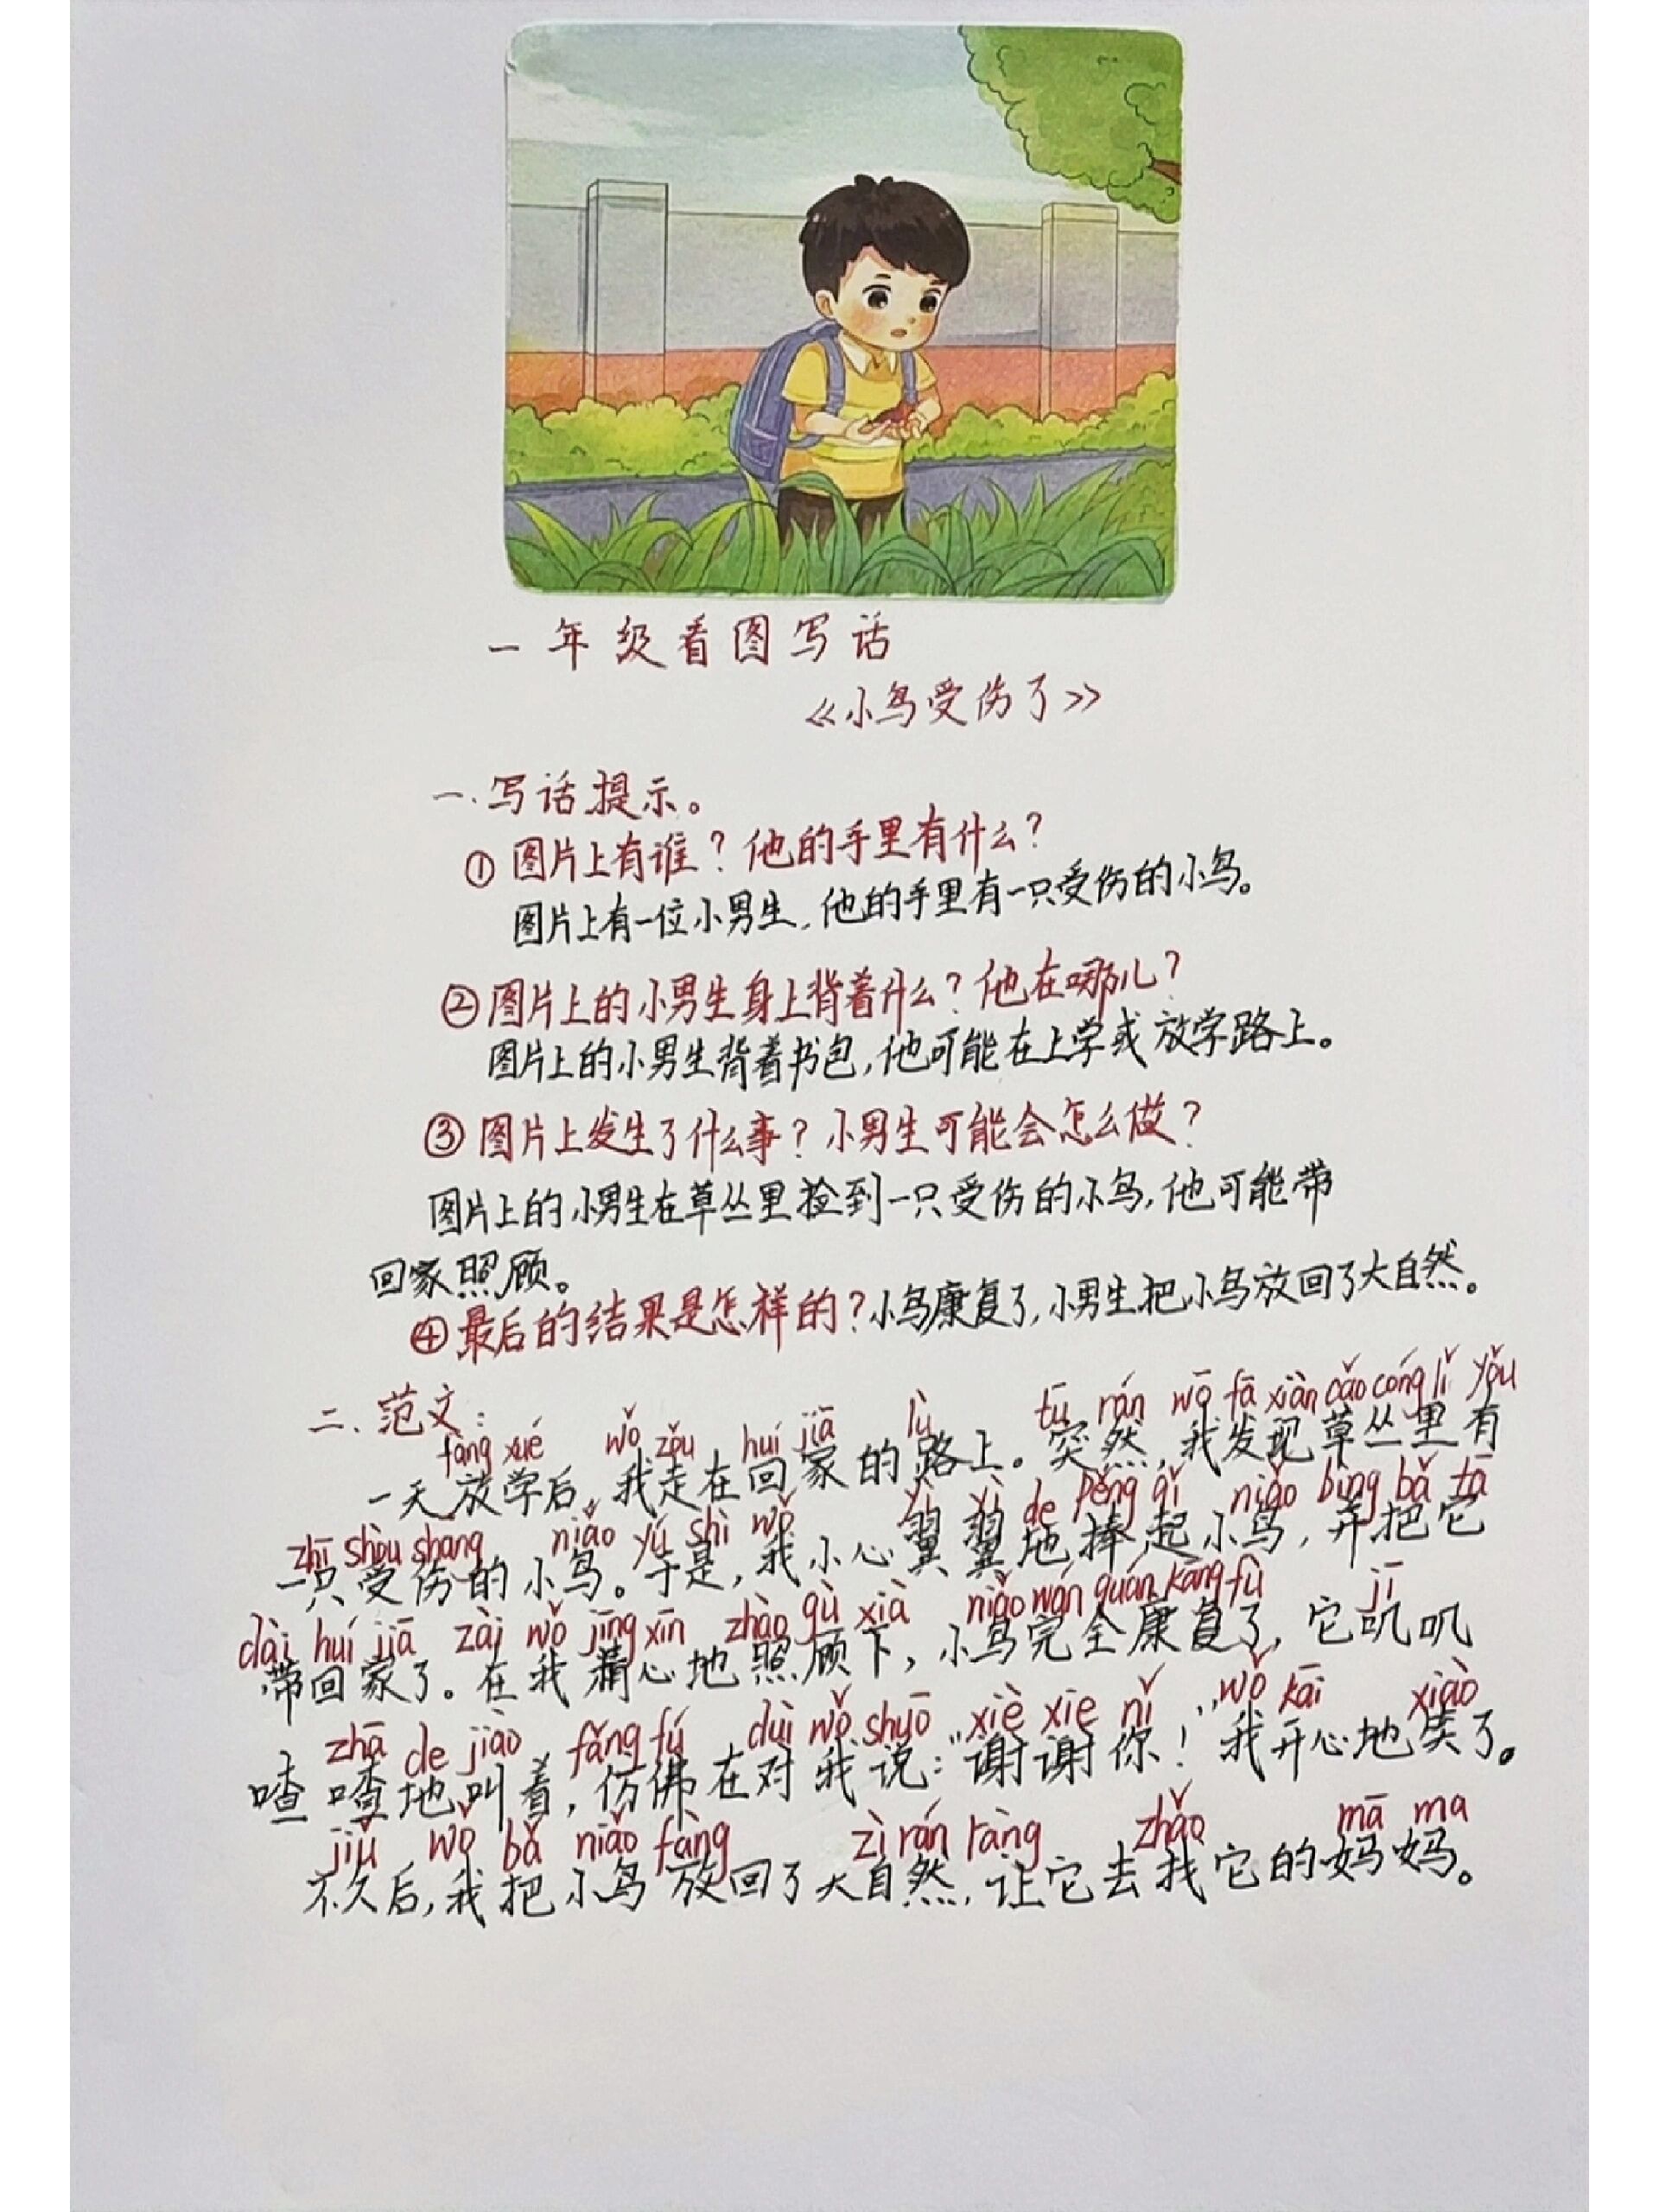 一年级看图写话
《小鸟受伤了》
一.写话提示。
①图片上有谁？他的手里有什么？
图片上有一位小男生，他的手里有一只受伤的小鸟。
②图片上的小男生身上背着什么？他在哪儿？
图片上的小男生背着书包，他可能在上学或放学路上。
③图片上发生了什么事？小男生可能会怎么做？
图片上的小男生在草丛里捡到一只受伤的小鸟，他可能带
回家照顾。
④最后的结果是怎样的？小鸟康复了，小男生把小鸟放回了大自然。
二.范文：
fàng xué wǒ zǒu huí jiā lù tū rán wǒ fā xiàn cǎo cóng lǐ yǒu
一天放学后，我走在回家的路上。突然，我发现草丛里有
zhī shòu shāng niǎo yú shì wǒ yì yì de pěng qǐ niǎo bìng bǎ tā
一只受伤的小鸟。于是，我小心翼翼地捧起小鸟，并把它
dài huí jiā zài wǒ jīng xīn zhào gù xià niǎo wán quán kāng fù jī
带回家了。在我精心地照顾下，小鸟完全康复了，它叽叽
zhā de jiào fǎng fú duì wǒ shuō xiè xie nǐ wǒ kāi xiào
喳喳地叫着，仿佛在对我说：“谢谢你！”我开心地笑了。
jiǔ wǒ bǎ niǎo fàng zì rán ràng zhǎo mā ma
不久后，我把小鸟放回了大自然，让它去找它的妈妈。